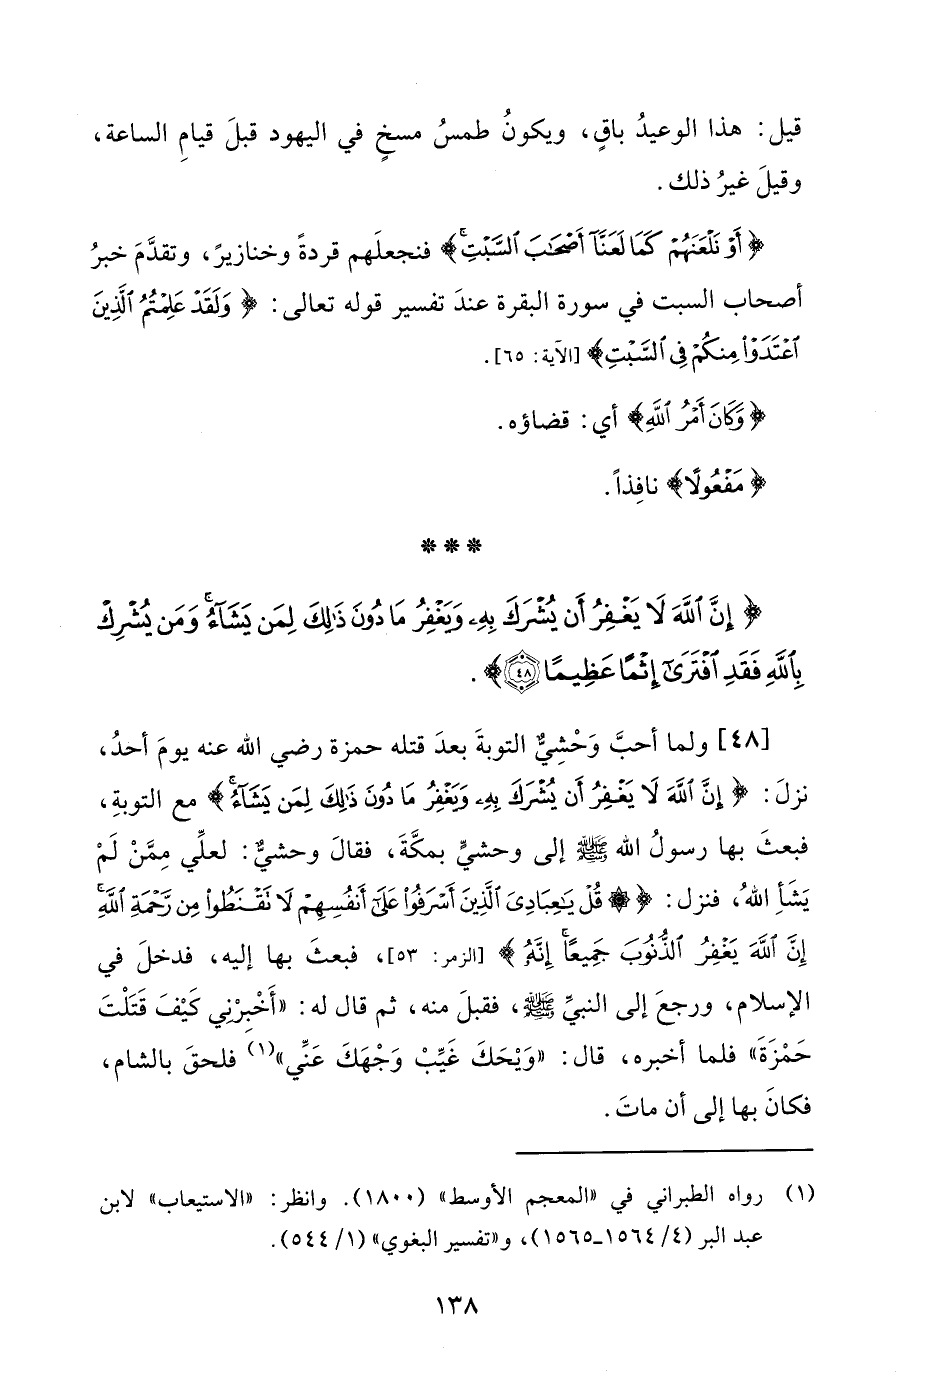 قيل: هذا الوعيدُ باقٍ، ويكونُ طمسُ مسخٍ في اليهود قبلَ قيامِ الساعة،
وقيلَ غيرُ ذلك.
﴿أَوْ نَلْعَنَهُمْ كَمَا لَعَنَّآ أَصْحَٰبَ ٱلسَّبْتِۚ﴾ فنجعلَهم قردةً وخنازيرً، وتقدَّمَ خبرُ
أصحاب السبت في سورة البقرة عندَ تفسير قوله تعالى: ﴿وَلَقَدْ عَلِمْتُمُ ٱلَّذِينَ
ٱعْتَدَوْا۟ مِنكُمْ فِي ٱلسَّبْتِ﴾ [الآية: ٦٥].
﴿وَكَانَ أَمْرُ ٱللَّهِ﴾ أي: قضاؤه.
﴿مَفْعُولًا﴾ نافِذاً.
***
﴿إِنَّ ٱللَّهَ لَا يَغْفِرُ أَن يُشْرَكَ بِهِۦ وَيَغْفِرُ مَا دُونَ ذَٰلِكَ لِمَن يَشَآءُۚ وَمَن يُشْرِكْ
بِٱللَّهِ فَقَدِ ٱفْتَرَىٰٓ إِثْمًا عَظِيمًا ٤٨﴾.
[٤٨] ولما أحبَّ وَحْشِيٌّ التوبةَ بعدَ قتله حمزة رضي الله عنه يومَ أحدُ،
نزلَ: ﴿إِنَّ ٱللَّهَ لَا يَغْفِرُ أَن يُشْرَكَ بِهِۦ وَيَغْفِرُ مَا دُونَ ذَٰلِكَ لِمَن يَشَآءُۚ﴾ مع التوبةِ،
فبعثَ بها رسولُ الله ﷺ إلى وحشيٍّ بمكَّةَ، فقالَ وحشيٌّ: لعلِّي مِمَّنْ لَمْ
يَشَأِ اللهُ، فنزل: ﴿۞ قُلْ يَٰعِبَادِىَ ٱلَّذِينَ أَسْرَفُوا۟ عَلَىٰٓ أَنفُسِهِمْ لَا تَقْنَطُوا۟ مِن رَّحْمَةِ ٱللَّهِۚ
إِنَّ ٱللَّهَ يَغْفِرُ ٱلذُّنُوبَ جَمِيعًاۚ إِنَّهُۥ﴾ [الزمر: ٥٣]، فبعثَ بها إليه، فدخلَ في
الإسلام، ورجعَ إلى النبيِّ ﷺ، فقبلَ منه، ثم قال له: «أَخْبِرْنِي كَيْفَ قَتَلْتَ
حَمْزَةَ» فلما أخبره، قال: «وَيْحَكَ غَيِّبْ وَجْهَكَ عَنِّي»(١) فلحقَ بالشام،
فكانَ بها إلى أن ماتَ.
(١) رواه الطبراني في «المعجم الأوسط» (١٨٠٠). وانظر: «الاستيعاب» لابن
عبد البر (٤/ ١٥٦٤-١٥٦٥)، و«تفسير البغوي» (١/ ٥٤٤).
١٣٨